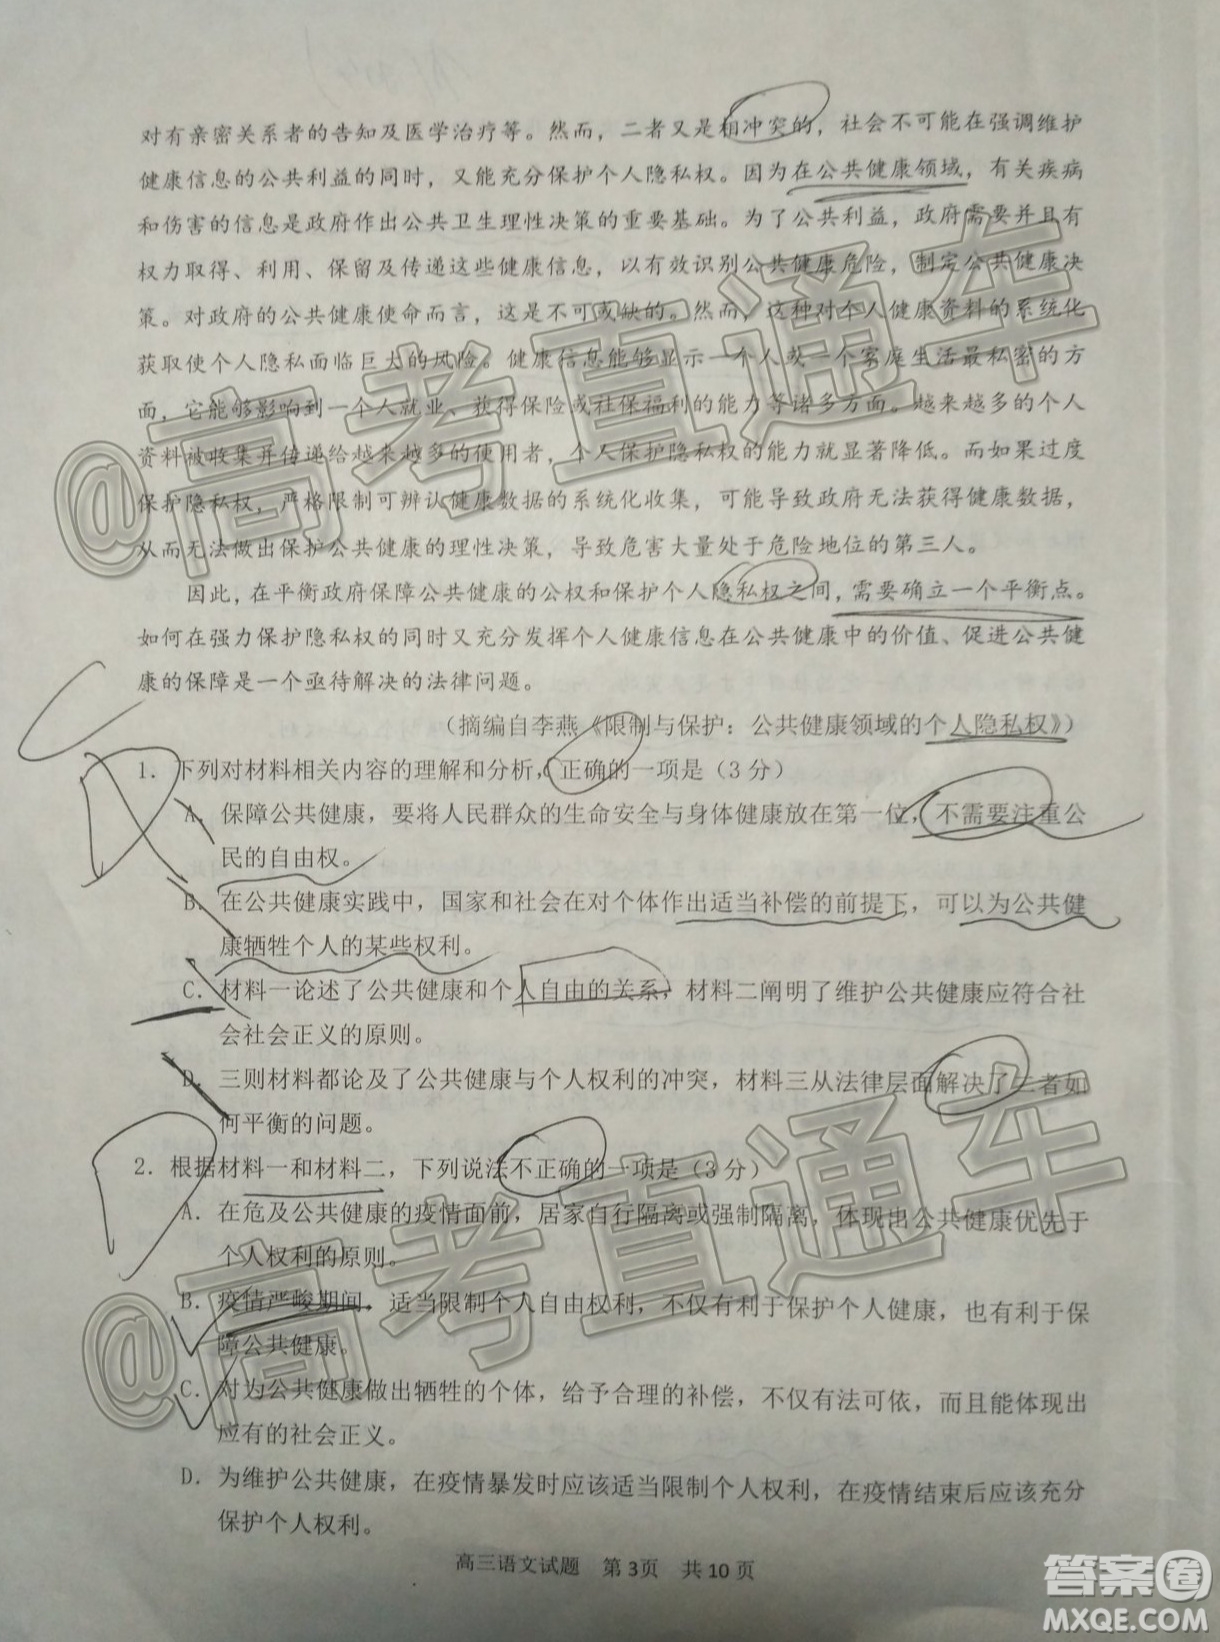 对有亲密关系者的告知及医学治疗等。然而，二者又是相冲突的，社会不可能在强调维护
健康信息的公共利益的同时，又能充分保护个人隐私权。因为在公共健康领域，有关疾病
和伤害的信息是政府作出公共卫生理性决策的重要基础。为了公共利益，政府需要并且有
权力取得、利用、保留及传递这些健康信息，以有效识别公共健康危险，制定公共健康决
策。对政府的公共健康使命而言，这是不可或缺的。然而，这种对个人健康资料的系统化
获取使个人隐私面临巨大的风险。健康信息能够显示一个人或一个家庭生活最私密的方
面，它能够影响到一个人就业、获得保险或社保福利的能力等诸多方面。越来越多的个人
资料被收集并传递给越来越多的使用者，个人保护隐私权的能力就显著降低。而如果过度
保护隐私权，严格限制可辨认健康数据的系统化收集，可能导致政府无法获得健康数据，
从而无法做出保护公共健康的理性决策，导致危害大量处于危险地位的第三人。
因此，在平衡政府保障公共健康的公权和保护个人隐私权之间，需要确立一个平衡点。
如何在强力保护隐私权的同时又充分发挥个人健康信息在公共健康中的价值、促进公共健
康的保障是一个亟待解决的法律问题。
（摘编自李燕《限制与保护：公共健康领域的个人隐私权》）
1．下列对材料相关内容的理解和分析，正确的一项是（3 分）
A．保障公共健康，要将人民群众的生命安全与身体健康放在第一位，不需要注重公
民的自由权。
B．在公共健康实践中，国家和社会在对个体作出适当补偿的前提下，可以为公共健
康牺牲个人的某些权利。
C．材料一论述了公共健康和个人自由的关系，材料二阐明了维护公共健康应符合社
会社会正义的原则。
D．三则材料都论及了公共健康与个人权利的冲突，材料三从法律层面解决了三者如
何平衡的问题。
2．根据材料一和材料二，下列说法不正确的一项是（3 分）
A．在危及公共健康的疫情面前，居家自行隔离或强制隔离，体现出公共健康优先于
个人权利的原则。
B．疫情严峻期间，适当限制个人自由权利，不仅有利于保护个人健康，也有利于保
障公共健康。
C．对为公共健康做出牺牲的个体，给予合理的补偿，不仅有法可依，而且能体现出
应有的社会正义。
D．为维护公共健康，在疫情暴发时应该适当限制个人权利，在疫情结束后应该充分
保护个人权利。
高三语文试题 第 3页 共 10 页
@高考直通车
@高考直通车
答案圈
MXQE.COM